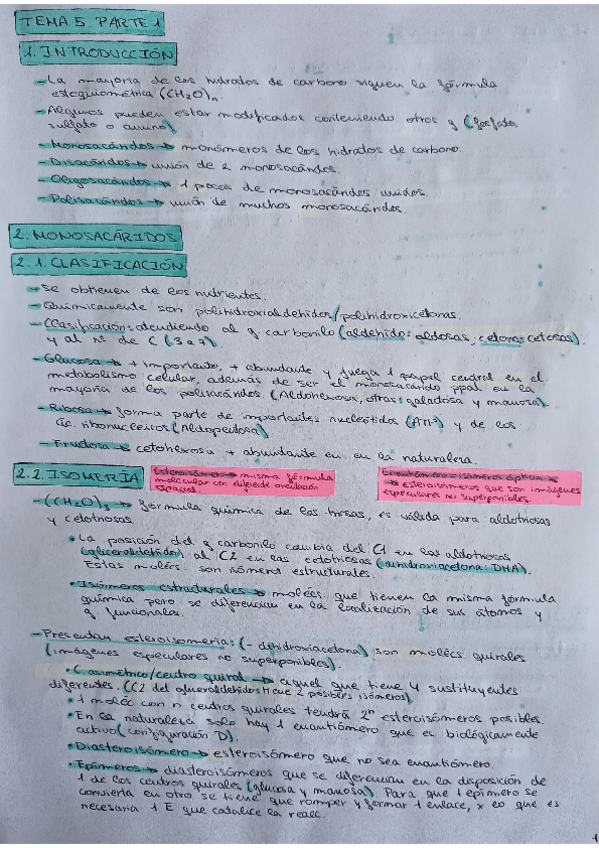 TEMA 5. PARTE 1
1. INTRODUCCIÓN
- La mayoría de los hidrados de carbono siguen la fórmula
estequiométrica (CH2O)n.
- Algunos pueden estar modificados conteniendo otros g (fosfato,
sulfato o amino).
- Monosacáridos → monómeros de los hidratos de carbono.
- Disacáridos → unión de 2 monosacáridos.
- Oligosacáridos → 1 pocos de monosacáridos unidos.
- Polisacáridos → unión de muchos monosacáridos.
2. MONOSACÁRIDOS
2.1. CLASIFICACIÓN
- Se obtienen de los nutrientes.
- Químicamente son polihidroxialdehidos/polihidroxicetonas.
- Clasificación: atendiendo al g carbonilo (aldehido: aldosas; cetona: cetosas)
y al nº de C (3 a 7).
- Glucosa → + importante, + abundante y juega 1 papel central en el
metabolismo celular, además de ser el monosacárido ppal en la
mayoría de los polisacáridos (Aldohexosa, otras: galactosa y manosa).
- Ribosa → forma parte de importantes nucleótidos (ATP) y de los
ác. ribonucleicos (Aldopentosa)
- Fructosa → cetohexosa + abundante en en la naturaleza.
2.2. ISOMERÍA
Estereoisómero → misma fórmula
molecular con diferente orientación
espacial.
Enantiómero = isómeros ópticos
→ estereoisómeros que son imágenes
especulares no superponibles.
- (CH2O)3 → fórmula química de las triosas, es válida para aldotriosas
y cetotriosas.
• La posición del g carbonilo cambia del C1 en las aldotriosas
(gliceraldehido) al C2 en las cetotriosas (dihidroxiacetona: DHA).
Estas molécs. son isómeros estructurales.
• Isómeros estructurales → molécs que tienen la misma fórmula
química pero se diferencian en la localización de sus átomos y
g funcionales.
- Presentan estereoisomería: (- dihidroxiacetona) son molécs quirales
(imágenes especulares no superponibles).
• C asimétrico/centro quiral → aquel que tiene 4 sustituyentes
diferentes. (C2 del gliceraldehido tiene 2 posibles isómeros).
• 1 moléc con n centros quirales tendrá 2ⁿ estereoisómeros posibles.
• En la naturaleza solo hay 1 enantiómero que es biológicamente
activo (configuración D).
• Diasteroisómero → estereoisómero que no sea enantiómero.
• Epímeros → diasteroisómeros que se diferencian en la disposición de
1 de los centros quirales (glucosa y manosa). Para que 1 epímero se
convierta en otro se tiene que romper y formar 1 enlace, x lo que es
necesaria 1 E que catalice la reacc.
1